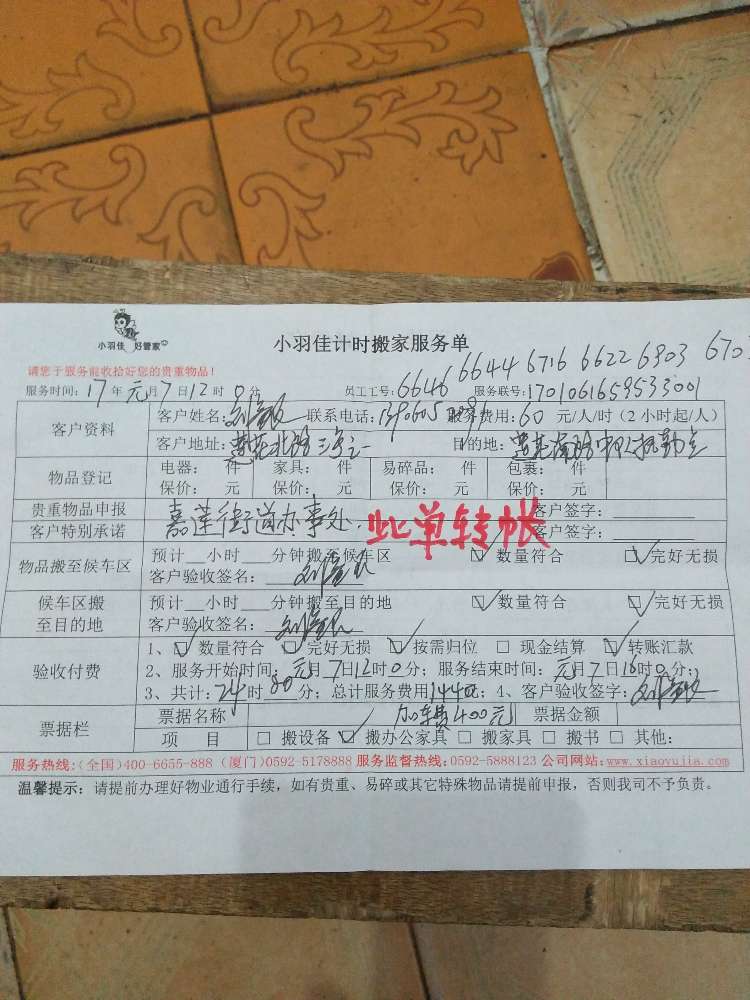 小羽佳 好管家
小羽佳计时搬家服务单
请您于服务前收拾好您的贵重物品!
服务时间: 17年元月7日12时0分 员工工号: 6646 6644 6716 6622 6903 670 服务联号: 1701061659533001
客户资料 客户姓名: 联系电话: 服务费用: 60 元/人/时 (2小时起/人)
客户地址: 莲花北路 目的地: 莲花南路
物品登记 电器: 件 家具: 件 易碎品: 件 包裹: 件
保价: 元 保价: 元 保价: 元 保价: 元
贵重物品申报 客户签字:
客户特别承诺 嘉莲街道办事处. 此单转帐 客户签字:
物品搬至候车区 预计__小时__分钟搬至候车区 ☑数量符合 ☑完好无损
客户验收签名:
候车区搬至目的地 预计__小时__分钟搬至目的地 ☑数量符合 ☑完好无损
客户验收签名:
验收付费 1、☑数量符合 ☑完好无损 ☑按需归位 □现金结算 ☑转账汇款
2、服务开始时间: 元月7日12时0分; 服务结束时间: 元月7日16时0分;
3、共计: 24时00分; 总计服务费用1440元; 4、客户验收签字:
票据栏 票据名称 加车费400元 票据金额
项 目 □搬设备 ☑搬办公家具 □搬家具 □搬书 □其他:
服务热线:(全国)400-6655-888 (厦门)0592-5178888 服务监督热线:0592-5888123 公司网站:www.xiaoyujia.com
温馨提示: 请提前办理好物业通行手续, 如有贵重、易碎或其它特殊物品请提前申报, 否则我司不予负责。